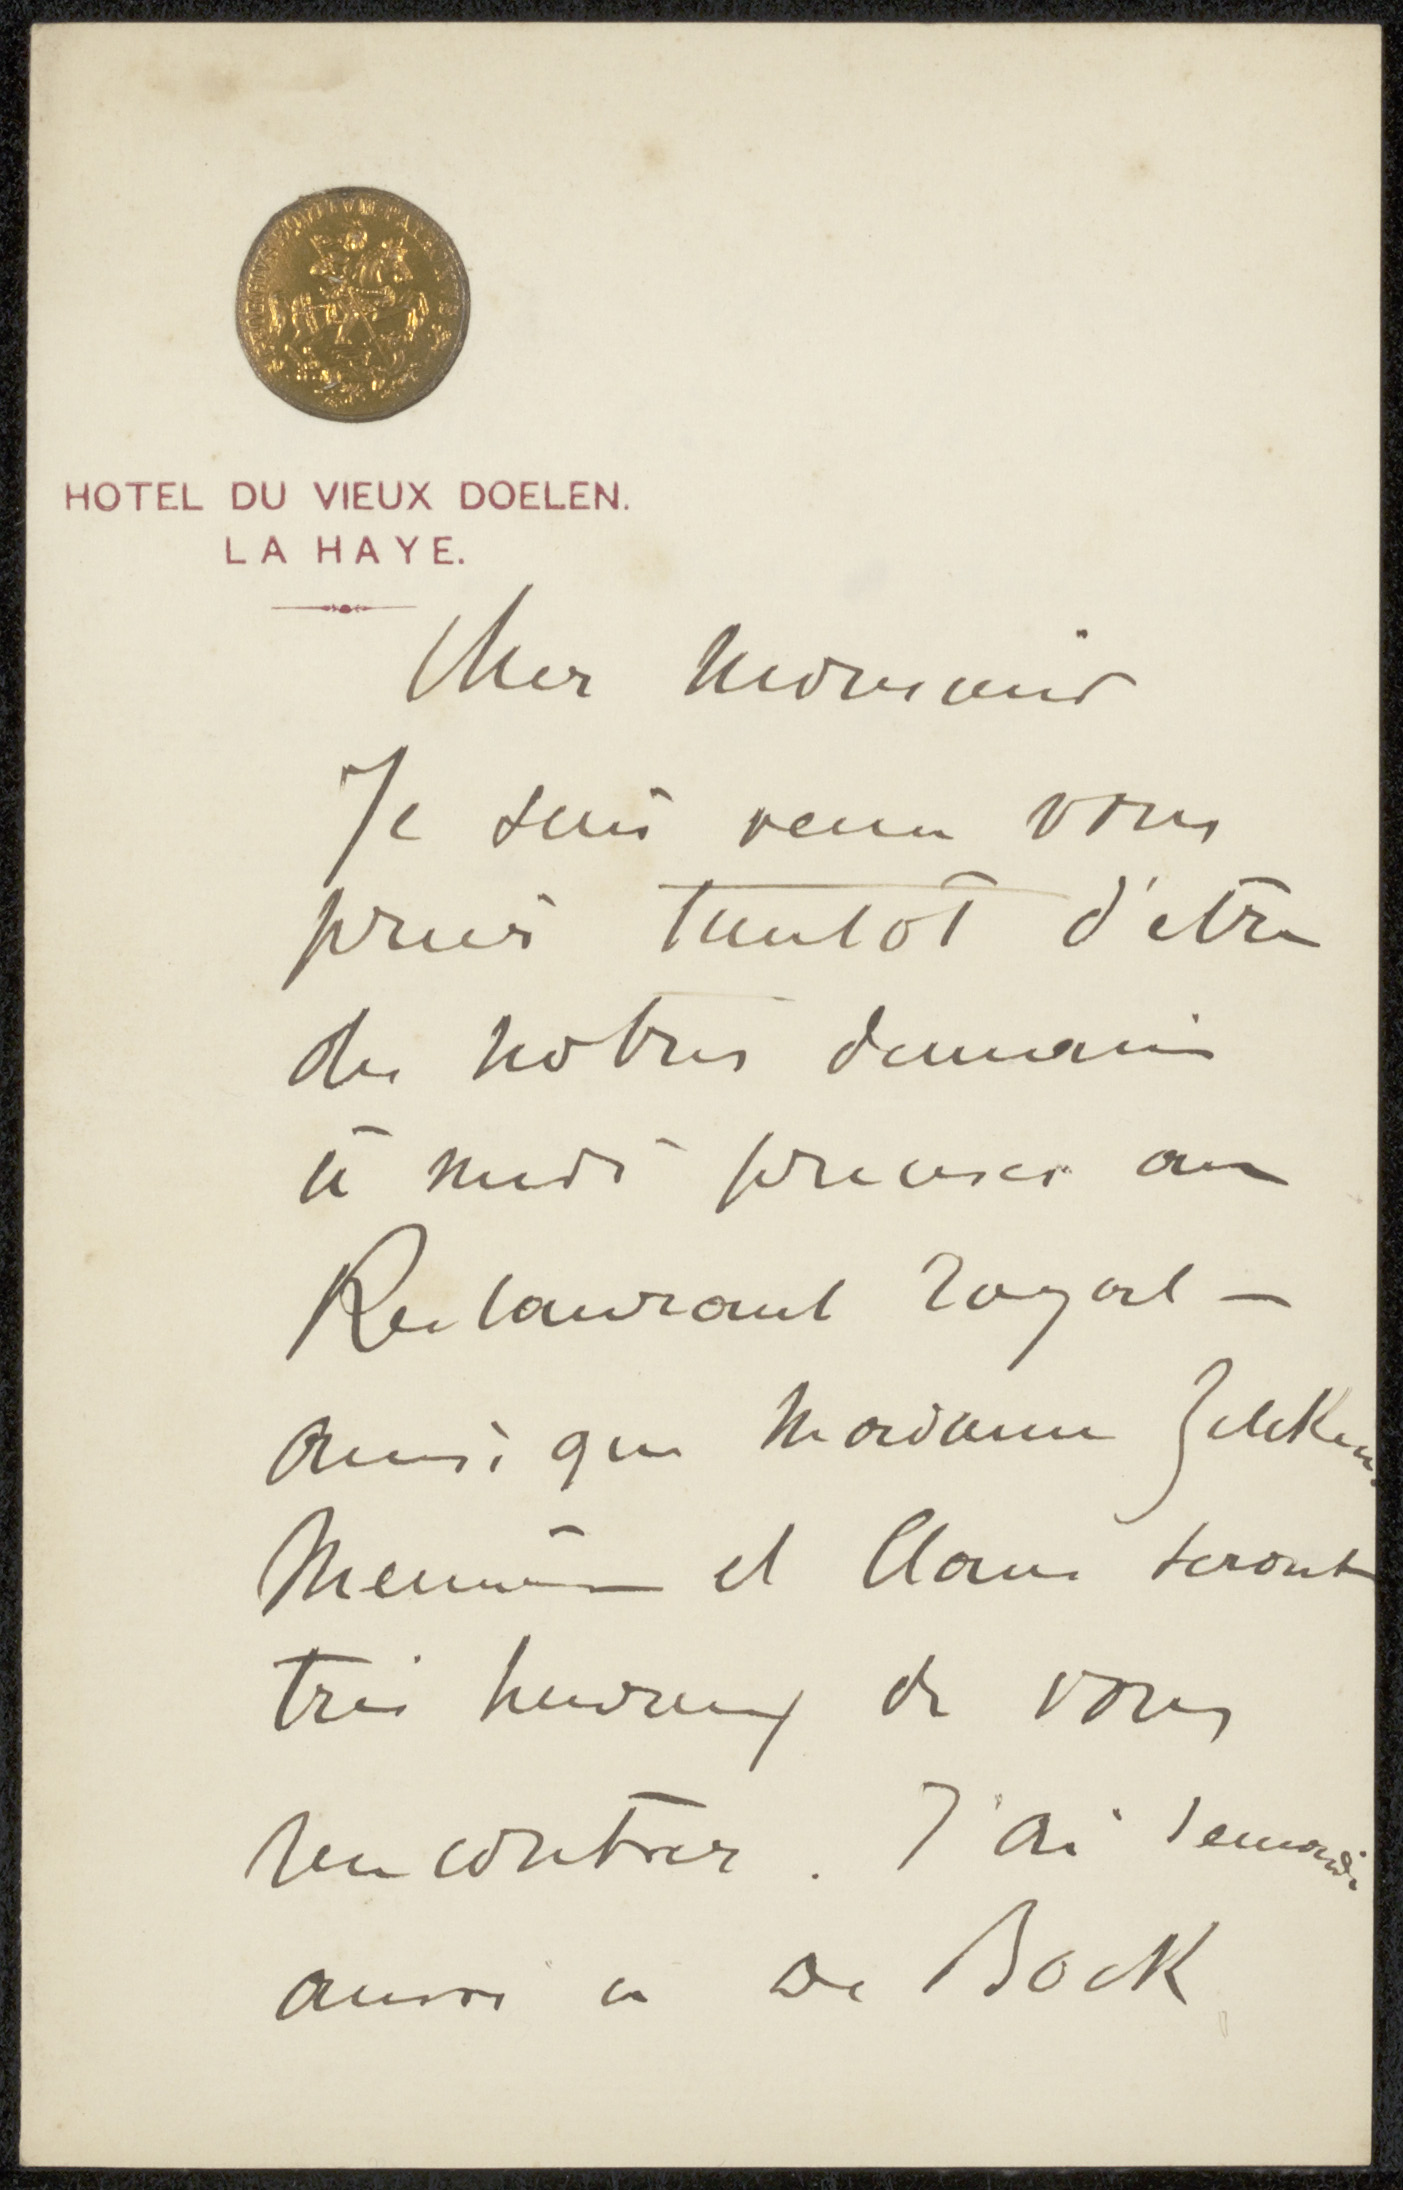 HOTEL DU VIEUX DOELEN.
LA HAYE.
Cher Monsieur
Je suis venu vous
prier tantôt d'etre
des notres demain
à midi precises au
Restaurant royal —
ainsi que Madame Zilcken.
Meunier et Claus seront
très heureux de vous
rencontrer. J'ai demandé
aussi a De Bock